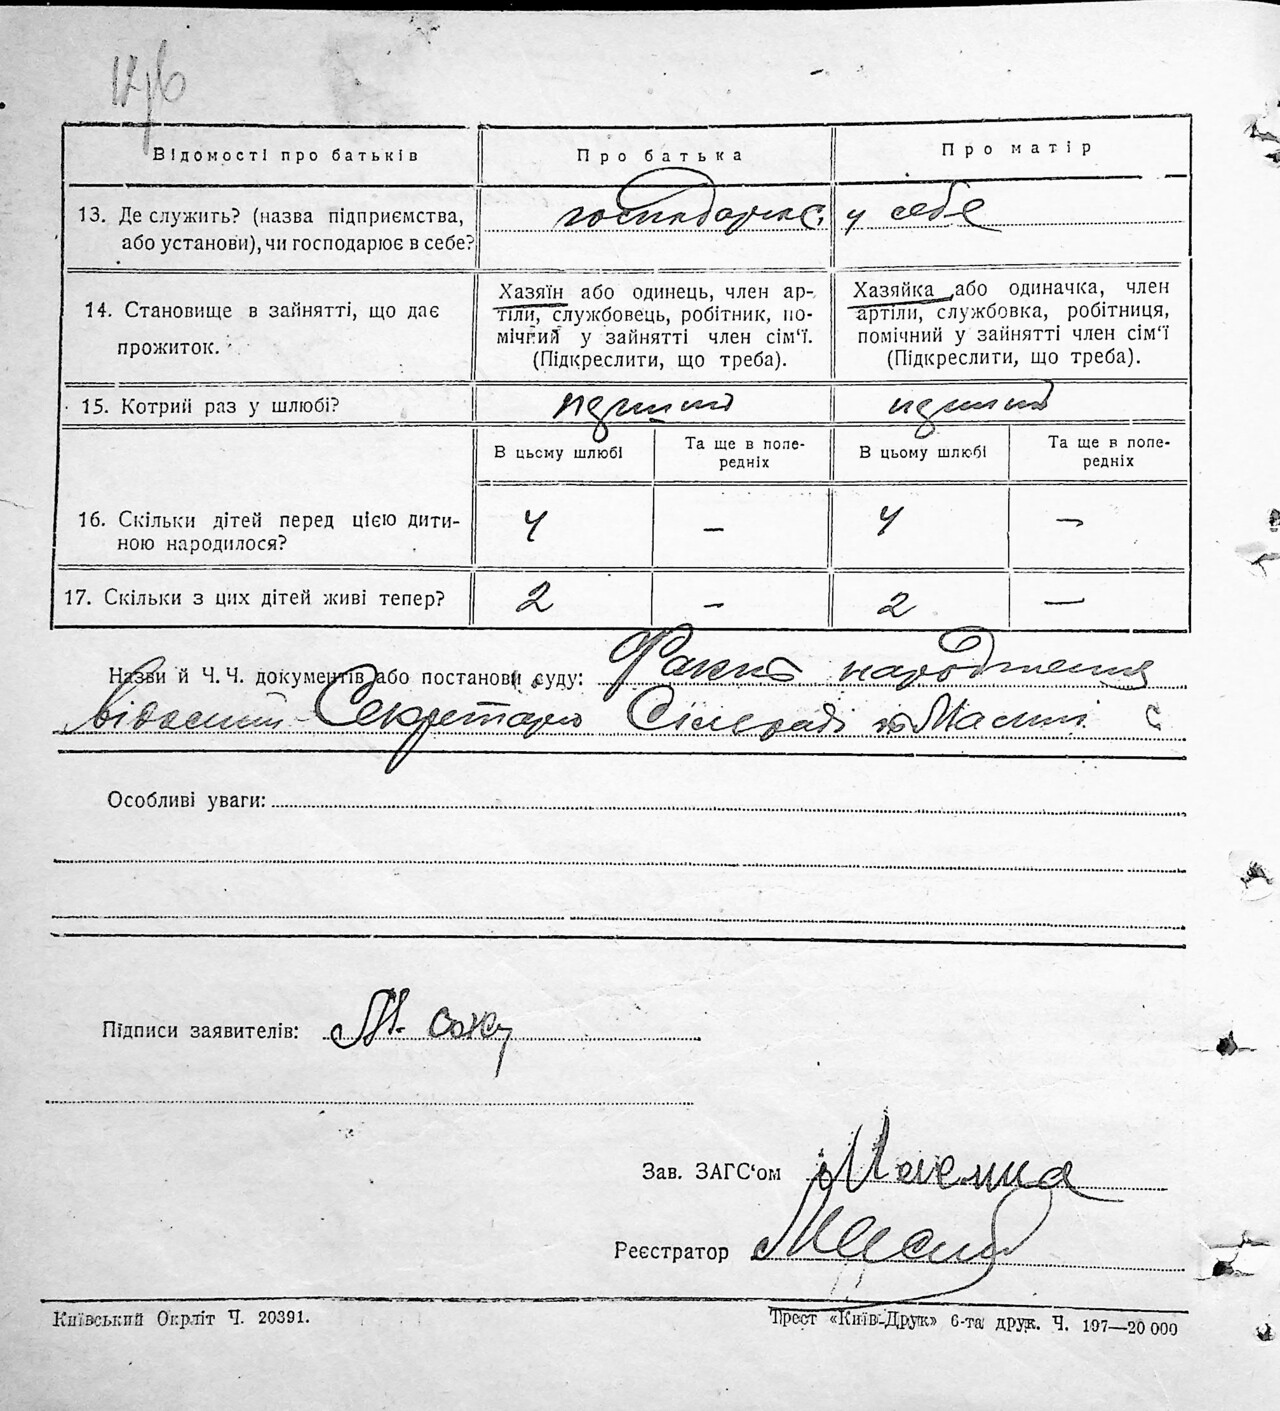 Відомості про батьків
Про батька
Про матір
13. Де служить? (назва підприємства,
або установи), чи господарює в себе?
господарює у себе
14. Становище в зайнятті, що дає
прожиток.
Хазяїн або одинець, член ар-
тіли, службовець, робітник, по-
мічний у зайнятті член сім'ї.
(Підкреслити, що треба).
Хазяйка або одиначка, член
артіли, службовка, робітниця,
помічний у зайнятті член сім'ї
(Підкреслити, що треба).
15. Котрий раз у шлюбі?
В цьому шлюбі
Та ще в попе-
редніх
В цьому шлюбі
Та ще в попе-
редніх
16. Скільки дітей перед цією дити-
ною народилося?
4 – 4 –
17. Скільки з цих дітей живі тепер?
2 – 2 –
Назви й Ч.Ч. документів або постанови суду: Факт народження
відомий Секретарю Сільради
Особливі уваги:
Підписи заявителів:
Зав. ЗАГС'ом
Реєстратор
Київський Окрліт Ч. 20391.
Трест «Київ-Друк» 6-та друк. Ч. 197—20 000